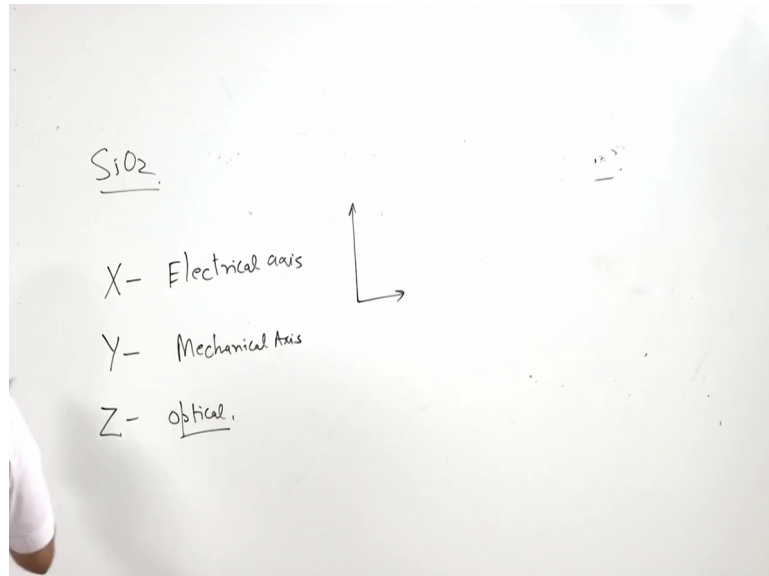 SiO2
X- Electrical axis
Y- Mechanical Axis
Z- optical.